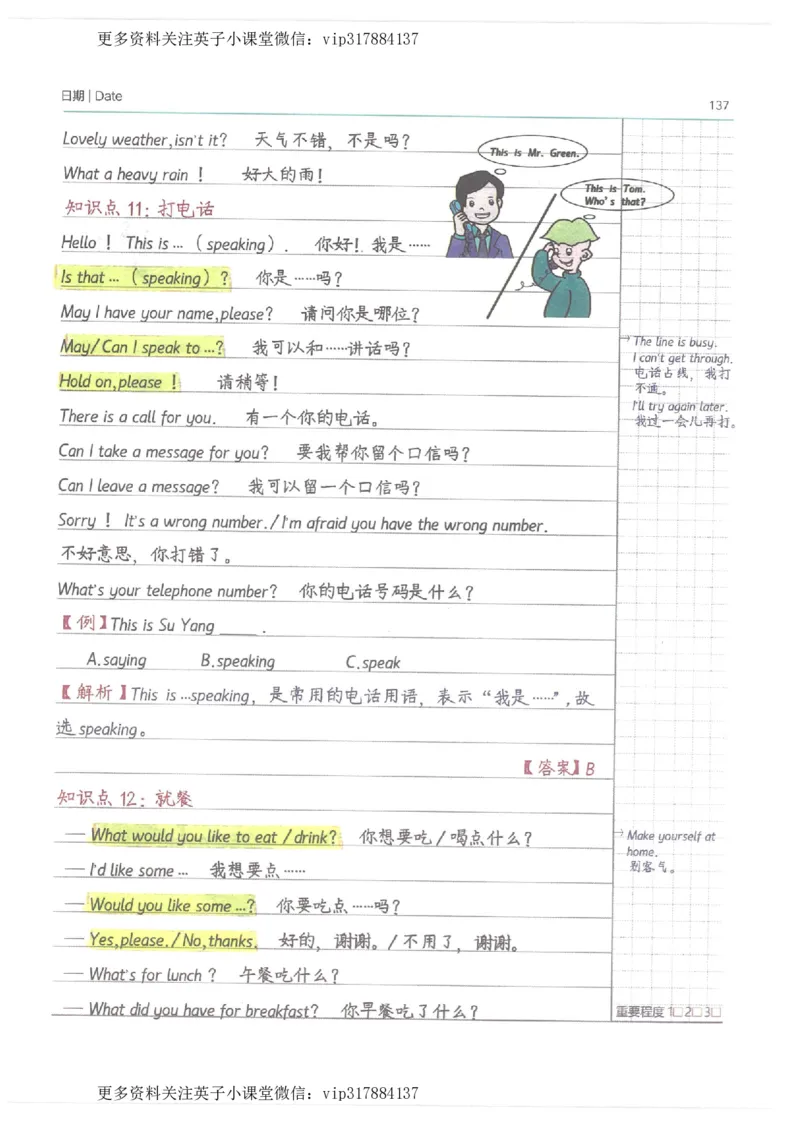 更多资料关注英子小课堂微信：vip317884137
日期 | Date
137
Lovely weather,isn't it? 天气不错，不是吗？
What a heavy rain！ 好大的雨！
This is Mr. Green.
This is Tom.
Who's that?
知识点 11：打电话
Hello！This is …（speaking）. 你好！我是……
Is that …（speaking）? 你是……吗？
May I have your name,please? 请问你是哪位？
May/Can I speak to …? 我可以和……讲话吗？
Hold on,please！ 请稍等！
There is a call for you. 有一个你的电话。
Can I take a message for you? 要我帮你留个口信吗？
Can I leave a message? 我可以留一个口信吗？
Sorry！It's a wrong number./I'm afraid you have the wrong number.
不好意思，你打错了。
What's your telephone number? 你的电话号码是什么？
【例】This is Su Yang ____ .
A.saying B.speaking C.speak
【解析】This is …speaking，是常用的电话用语，表示“我是……”，故
选 speaking。
【答案】B
The line is busy.
I can't get through.
电话占线，我打
不通。
I'll try again later.
我过一会儿再打。
知识点 12：就餐
— What would you like to eat / drink? 你想要吃/喝点什么？
— I'd like some … 我想要点……
— Would you like some …? 你要吃点……吗？
— Yes,please./No,thanks. 好的，谢谢。/不用了，谢谢。
— What's for lunch？ 午餐吃什么？
— What did you have for breakfast? 你早餐吃了什么？
Make yourself at
home.
别客气。
重要程度 1□ 2□ 3□
更多资料关注英子小课堂微信：vip317884137